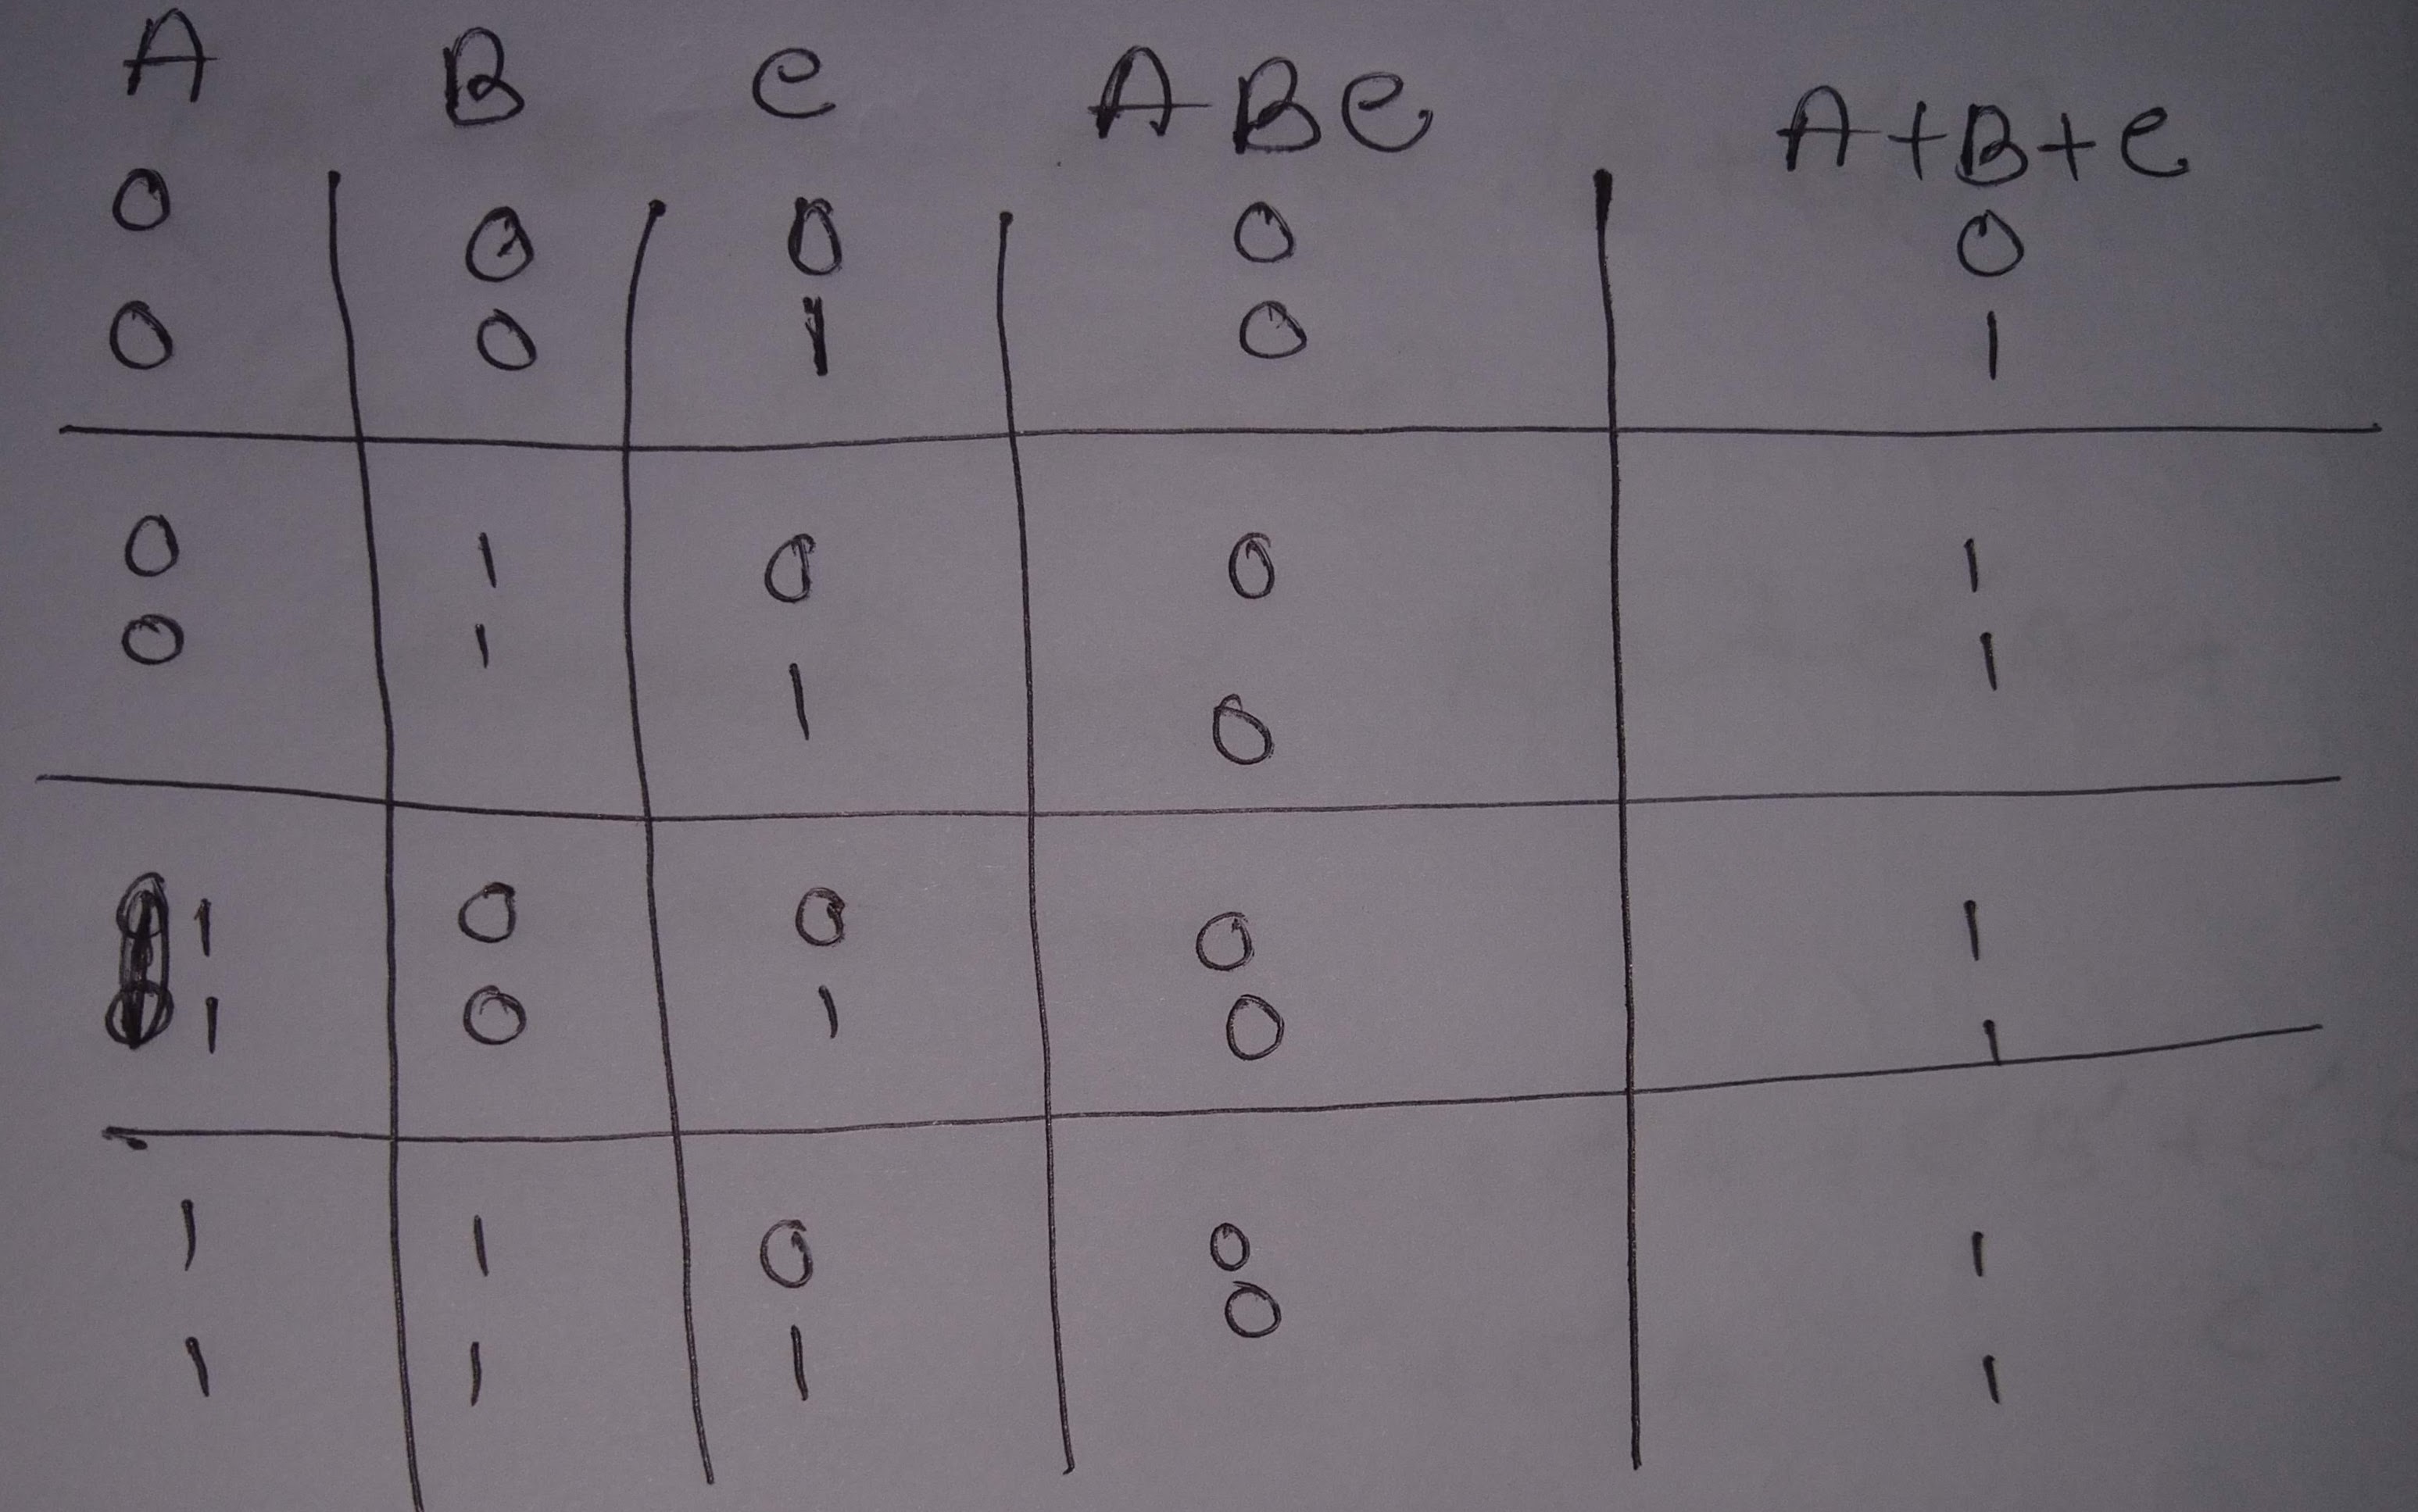 A B C ABC A+B+C
0 0 0 0 0
0 0 1 0 1
0 1 0 0 1
0 1 1 0 1
1 0 0 0 1
1 0 1 0 1
1 1 0 0 1
1 1 1 0 1